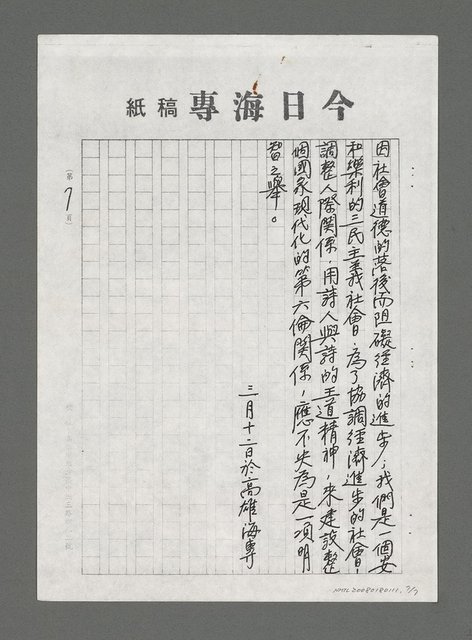 今日海專稿紙
因社會道德的落後而阻礙經濟的進步；我們是一個安
和樂利的三民主義社會，為了協調經濟進步的社會，
調整人際關係，用詩人與詩的王道精神，來建設整
個國家現代化的第六倫關係，應不失為是一項明
智之舉。
三月十二日於高雄海專
（第7頁）
NMTL20080180111. 7/7